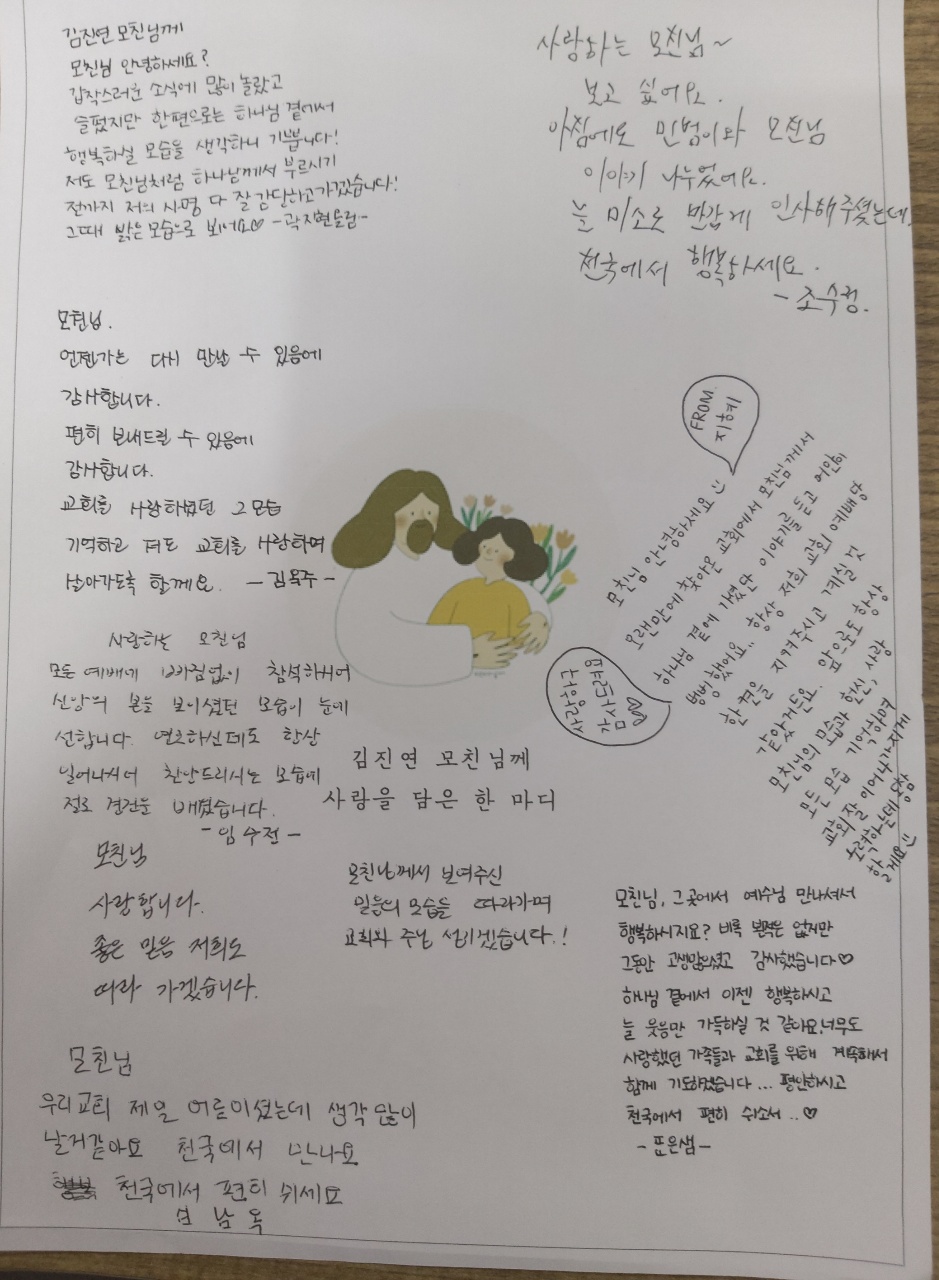 김진연 모친님께
모친님 안녕하세요?
갑작스러운 소식에 많이 놀랐고
슬펐지만 한편으로는 하나님 곁에서
행복하실 모습을 생각하니 기쁩니다!
저도 모친님처럼 하나님께서 부르시기
전까지 저의 사명 다 잘 감당하고가겠습니다!
그때 밝은 모습으로 봬어요♡ -곽지현올림-
사랑하는 모친님~
보고 싶어요.
아침에도 민범이와 모친님
이야기 나누었어요.
늘 미소로 반갑게 인사해주셨는데,
천국에서 행복하세요.
- 조수정.
모친님.
언젠가는 다시 만날 수 있음에
감사합니다.
편히 보내드릴 수 있음에
감사합니다.
교회를 사랑하셨던 그 모습
기억하고 저도 교회를 사랑하며
살아가도록 할께요. -김옥주-
사랑하는 모친님
모든 예배에 빠짐없이 참석하시어
신앙의 본을 보이셨던 모습이 눈에
선합니다. 연로하신데도 항상
일어나시어 찬난드리시는 모습에
절로 경건을 배웠습니다.
-임수전-
FROM.
지혜
모친님 안녕하세요 :)
오랜만에 찾아온 교회에서 모친님께서
하나님 곁에 가셨단 이야기를 듣고 어안이
벙벙했어요.. 항상 저희 교회 예배당
한 켠을 지켜주시고 계실 것
같았거든요. 앞으로도 항상
모친님의 모습과 헌신, 사랑
모든 모습 기억하며
교회 잘 이어나가지게
노력하는데 동참
할게요 :)
김진연 모친님께
사랑을 담은 한 마디
모친님
사랑합니다.
좋은 믿음 저희도
따라 가겠습니다.
모친님께서 보여주신
믿음의 모습들 따라가며
교회와 주님 섬기겠습니다.!
모친님, 그곳에서 예수님 만나셔서
행복하시지요? 비록 본적은 없지만
그동안 고생많으셨고 감사했습니다♡
하나님 곁에서 이젠 행복하시고
늘 웃음만 가득하실 것 같아요. 너무도
사랑했던 가족들과 교회를 위해 계속해서
함께 기도하겠습니다... 평안하시고
천국에서 편히 쉬소서..♡
모친님
우리교회 제일 어른이셨는데 생각 많이
날거같아요 천국에서 만나요
천국에서 편히 쉬세요
남옥